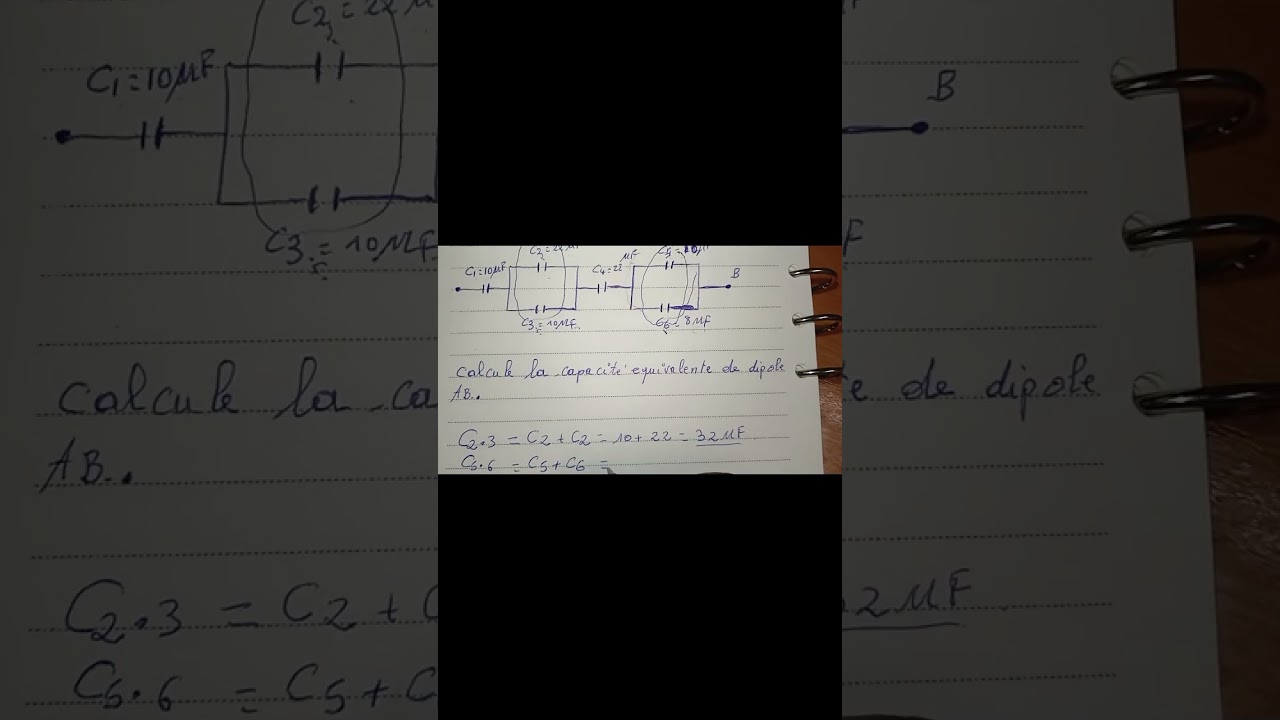 C2 = 22 µF
C5 = 10 µF
C1 = 10 µF
C4 = 22 µF
B
C3 = 10 µF
C6 = 8 µF
calcule la capacité equivalente de dipole
AB.
C2.3 = C2 + C2 = 10 + 22 = 32 µF
C5.6 = C5 + C6 =